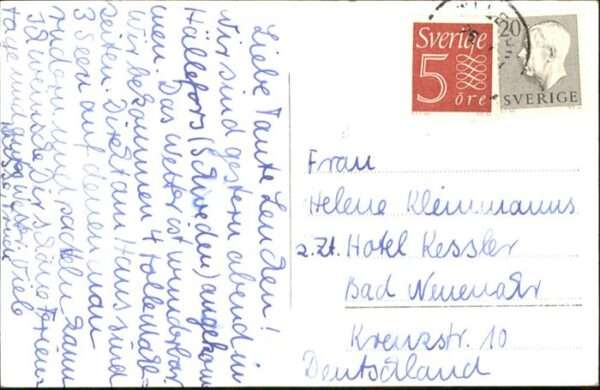 Liebe Tante Lenchen!
Wir sind gestern abend in
Hällefors (Schweden) angekom
men. Das Wetter ist wunderbar.
Wir bekommen 4
zeiten. Direkt am Haus sind
3 Seen auf denen man
rudern und paddeln kann
Ich wünsche Dir schöne Ferien
tage und gutes Wetter. Viele
Sverige
5
öre
20
SVERIGE
Frau
Helene Kleinmanns
z.Zt. Hotel Kessler
Bad Neuenahr
Kreuzstr. 10
Deutschland